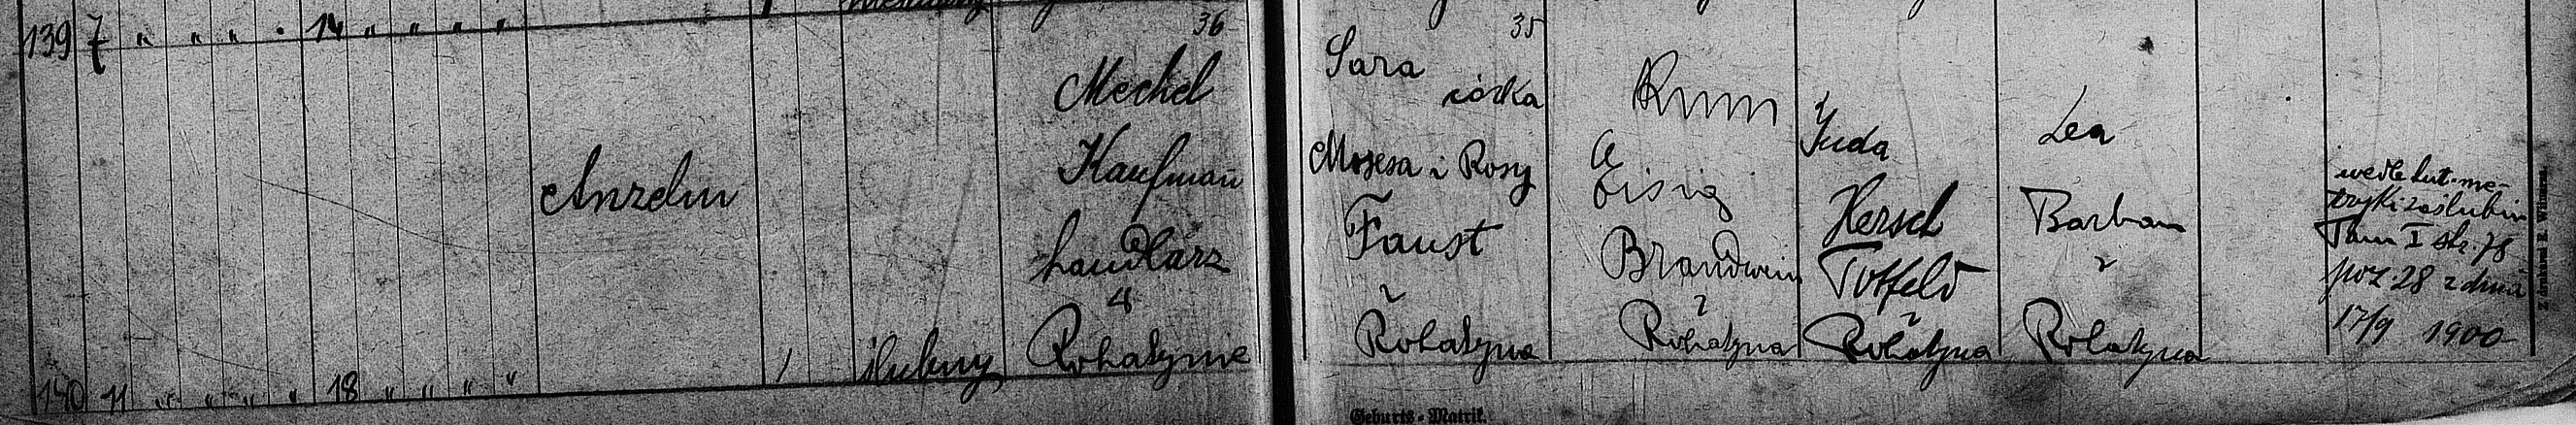 36 35
139 7 " " " " 14 " " " "
Anzelm
1
ślubny
Mechel
Kaufman
handlarz
w
Rohatynie
Sara
córka
Mojesa i Rosy
Faust
z
Rohatyna
Eisig
Brandwein
z
Rohatyna
Juda
Hersch
Totfeld
z
Rohatyna
Lea
Barban
z
Rohatyna
wedle lut. me-
tryki zaślubin
Tom I str. 78
poz. 28 z dnia
17/9 1900
140 11 " " " " 18 " " " "
Geburts-Matrik.
Z drukarni